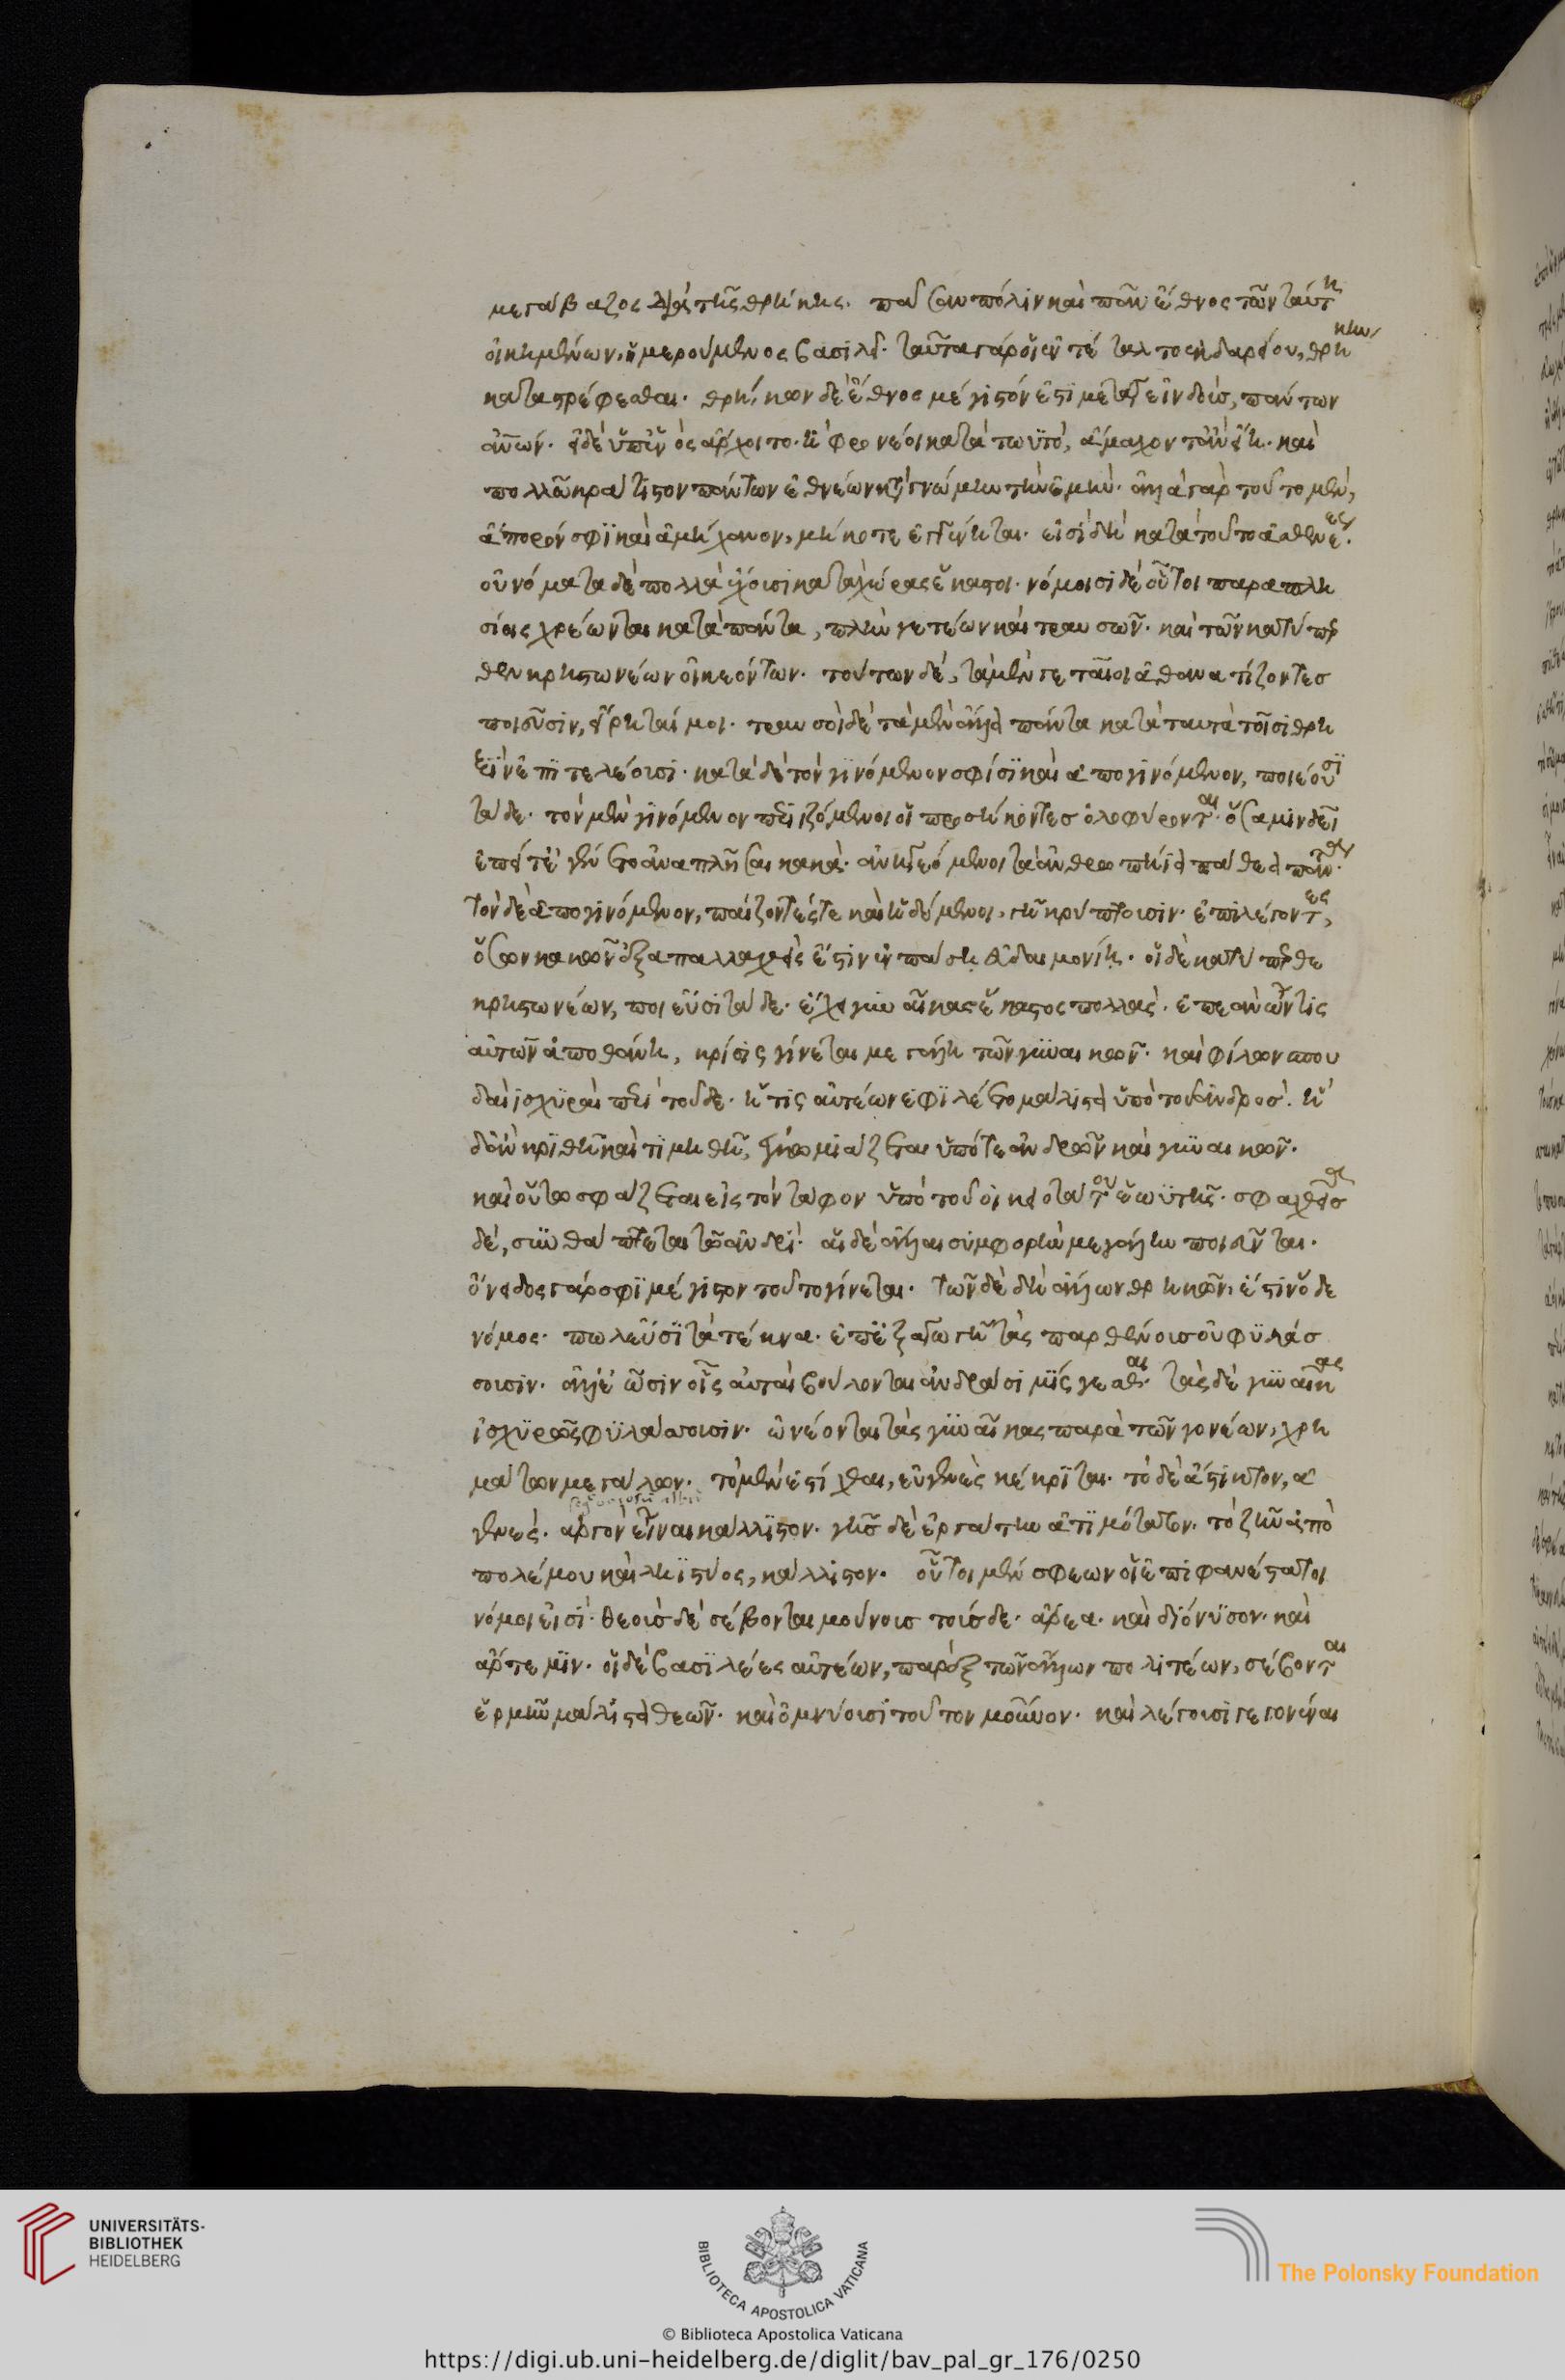 μεγάβαζος διὰ τῆς θρηίκης. πᾶσαν πόλιν καὶ πᾶν ἔθνος τῶν ταύτῃ
οἰκημένων, ἡμερούμενος βασιλεῖ. ταῦτα γάρ οἱ ἐντέταλτο ἐκ δαρείου, θρηίκην
καταστρέφεσθαι. θρηίκων δὲ ἔθνος μέγιστόν ἐστι μετά γε ἰνδοὺς, πάντων
ἀνθρώπων. εἰ δὲ ὑπ' ἑνὸς ἄρχοιτο. ἢ φρονέοι κατὰ τωὐτό, ἄμαχόν τ' ἂν εἴη. καὶ
πολλῷ κράτιστον πάντων ἐθνέων κατὰ γνώμην τὴν ἐμήν. ἀλλὰ γὰρ τοῦτο μὲν,
ἄπορόν σφι καὶ ἀμήχανον, μή κοτε ἐγγένηται. εἰσὶ δὴ κατὰ τοῦτο ἀσθενέες.
οὐνόματα δὲ πολλὰ ἔχουσι κατὰ χώρας ἕκαστοι. νόμοισι δὲ οὗτοι παραπλη
σίοις χρέωνται κατὰ πάντα, πλὴν γετέων καὶ τραυσῶν. καὶ τῶν κατύπερ
θεν κρηστωνέων οἰκεόντων. τούτων δὲ, τὰ μὲν γεταῖοι ἀθανατίζοντες
ποιοῦσιν, εἴρηταί μοι. τραυσοὶ δὲ τὰ μὲν ἄλλα πάντα κατὰ ταυτὰ τοῖσι θρή
ξιν ἐπιτελέουσι. κατὰ δὲ τὸν γινόμενον σφίσι καὶ ἀπογινόμενον, ποιέουσι
τάδε. τὸν μὲν γινόμενον περιιζόμενοι οἱ προσήκοντες ὀλοφύρονται. ὅσα μιν δεῖ
ἐπεί τε ἐγένετο ἀναπλῆσαι κακά. ἀνηγεόμενοι τὰ ἀνθρωπήια πάθεα πάντα.
τὸν δὲ ἀπογινόμενον, παίζοντές τε καὶ ἡδόμενοι, γῇ κρύπτουσιν. ἐπιλέγοντες,
ὅσων κακῶν ἐξαπαλλαχθεὶς ἔστιν ἐν πάσῃ εὐδαιμονίῃ. οἱ δὲ κατύπερθε
κρηστωνέων, ποιεῦσι τάδε. ἔχει γυναῖκας ἕκαστος πολλάς. ἐπεὰν ὦν τις
αὐτῶν ἀποθάνῃ, κρίσις γίνεται μεγάλη τῶν γυναικῶν. καὶ φίλων σπου
δαὶ ἰσχυραὶ περὶ τοῦδε. ἥτις αὐτέων ἐφιλέετο μάλιστα ὑπὸ τοῦ ἀνδρός. ἣ
δ' ἂν κριθῇ καὶ τιμηθῇ, ἐγκωμιάζεται ὑπό τε ἀνδρῶν καὶ γυναικῶν.
καὶ οὕτω σφάζεται εἰς τὸν τάφον ὑπὸ τοῦ οἰκειοτάτου ἑωυτῆς. σφαχθεῖσα
δὲ, συνθάπτεται τῷ ἀνδρί. αἱ δὲ ἄλλαι συμφορὴν μεγάλην ποιεῦνται.
ὄνειδος γάρ σφι μέγιστον τοῦτο γίνεται. τῶν δὲ δὴ ἄλλων θρηίκων, ἐστὶν ὅδε
νόμος. πωλεῦσι τὰ τέκνα. ἐπ' ἐξαγωγῇ τὰς παρθένους οὐ φυλάσ
σουσιν. ἀλλ' ἐῶσιν οἷς αὐταὶ βούλονται ἀνδράσι μίσγεσθαι. τὰς δὲ γυναῖκας
ἰσχυρῶς φυλάσσουσιν. ὠνέονται τὰς γυναῖκας παρὰ τῶν γονέων, χρη
μάτων μεγάλων. τὸ μὲν ἐστίχθαι, εὐγενὲς κέκριται. τὸ δὲ ἄστικτον, ἀ
γενές. ἀργὸν εἶναι κάλλιστον. γῆς δὲ ἐργάτην ἀτιμότατον. τὸ ζῆν ἀπὸ
πολέμου καὶ ληιστύος, κάλλιστον. οὗτοι μέν σφεων οἱ ἐπιφανέστατοι
νόμοι εἰσί. θεοὺς δὲ σέβονται μούνους τούσδε. ἄρεα. καὶ διόνυσον. καὶ
ἄρτεμιν. οἱ δὲ βασιλέες αὐτέων, πάρεξ τῶν ἄλλων πολιτέων, σέβονται
ἑρμῆν μάλιστα θεῶν. καὶ ὀμνύουσι τοῦτον μοῦνον. καὶ λέγουσι γεγονέναι
UNIVERSITÄTS-
BIBLIOTHEK
HEIDELBERG
BIBLIOTECA APOSTOLICA VATICANA
The Polonsky Foundation
© Biblioteca Apostolica Vaticana
https://digi.ub.uni-heidelberg.de/diglit/bav_pal_gr_176/0250